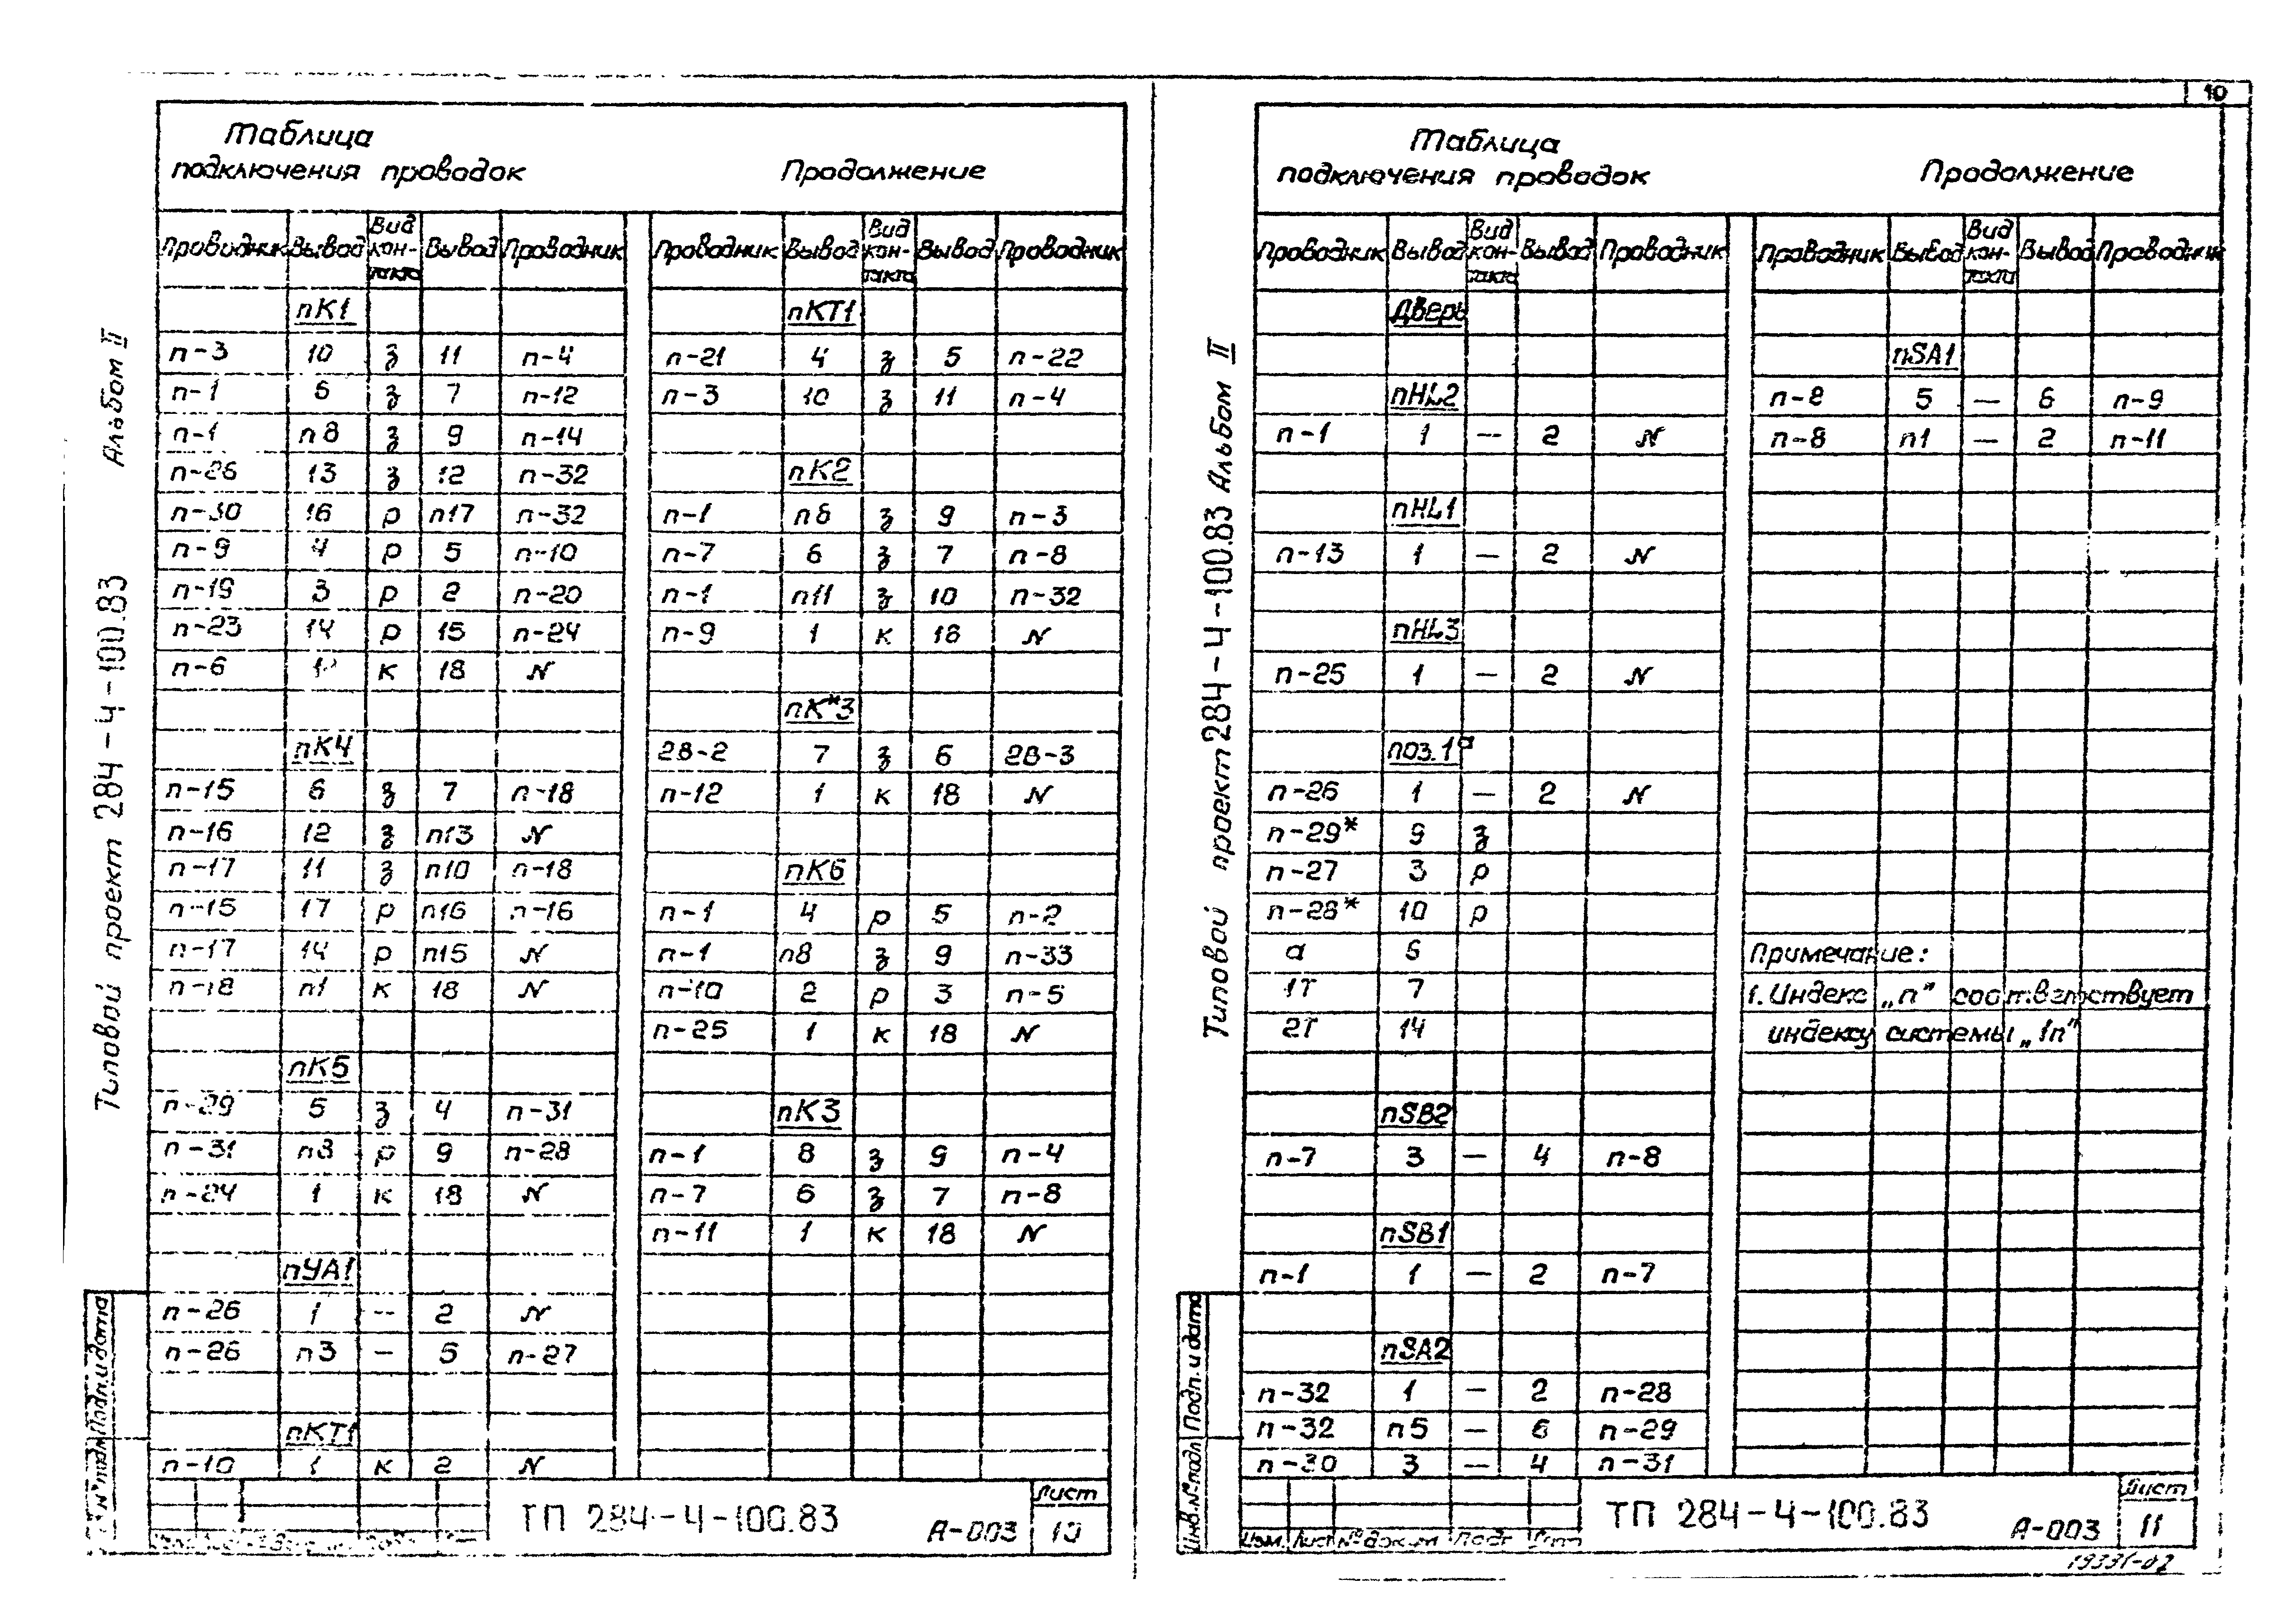 10
Альбом II
Типовой проект 284-4-100.83
Таблица
подключения проводок Продолжение
Проводник Вывод Вид контакта Вывод Проводник
пК1
п-3 10 з 11 п-4
п-1 6 з 7 п-12
п-1 п8 з 9 п-14
п-26 13 з 12 п-32
п-30 16 р п17 п-32
п-9 4 р 5 п-10
п-19 3 р 2 п-20
п-23 14 р 15 п-24
п-6 к 18 N
пК4
п-15 6 з 7 п-18
п-16 12 з п13 N
п-17 11 з п10 п-18
п-15 17 р п16 п-16
п-17 14 р п15 N
п-18 п1 к 18 N
пК5
п-29 5 з 4 п-31
п-31 п8 р 9 п-28
п-24 1 к 18 N
пУА1
п-26 1 - 2 N
п-26 п3 - 5 п-27
пКТ1
п-10 1 к 2 N
Проводник Вывод Вид контакта Вывод Проводник
пКТ1
п-21 4 з 5 п-22
п-3 10 з 11 п-4
пК2
п-1 п8 з 9 п-3
п-7 6 з 7 п-8
п-1 п11 з 10 п-32
п-9 1 к 18 N
пК*3
2В-2 7 з 6 2В-3
п-12 1 к 18 N
пК6
п-1 4 р 5 п-2
п-1 п8 з 9 п-33
п-10 2 р 3 п-5
п-25 1 к 18 N
пК3
п-1 8 з 9 п-4
п-7 6 з 7 п-8
п-11 1 к 18 N
ТП 284-4-100.83 А-003
Лист
10
Альбом II
Типовой проект 284-4-100.83
Таблица
подключения проводок Продолжение
Проводник Вывод Вид контакта Вывод Проводник
Дверь
пHL2
п-1 1 - 2 N
пHL1
п-13 1 - 2 N
пHL3
п-25 1 - 2 N
поз.1а
п-26 1 - 2 N
п-29* 9 з
п-27 3 р
п-28* 10 р
а 6
1Т 7
2Т 14
пSB2
п-7 3 - 4 п-8
пSB1
п-1 1 - 2 п-7
пSA2
п-32 1 - 2 п-28
п-32 п5 - 6 п-29
п-30 3 - 4 п-31
Проводник Вывод Вид контакта Вывод Проводник
пSA1
п-8 5 - 6 п-9
п-8 п1 - 2 п-11
Примечание:
1. Индекс „п" соответствует
индексу системы „1п"
Инв.№подл Подп. и дата
Изм. Лист № докум Подп
ТП 284-4-100.83 А-003
Лист
11
19331-02